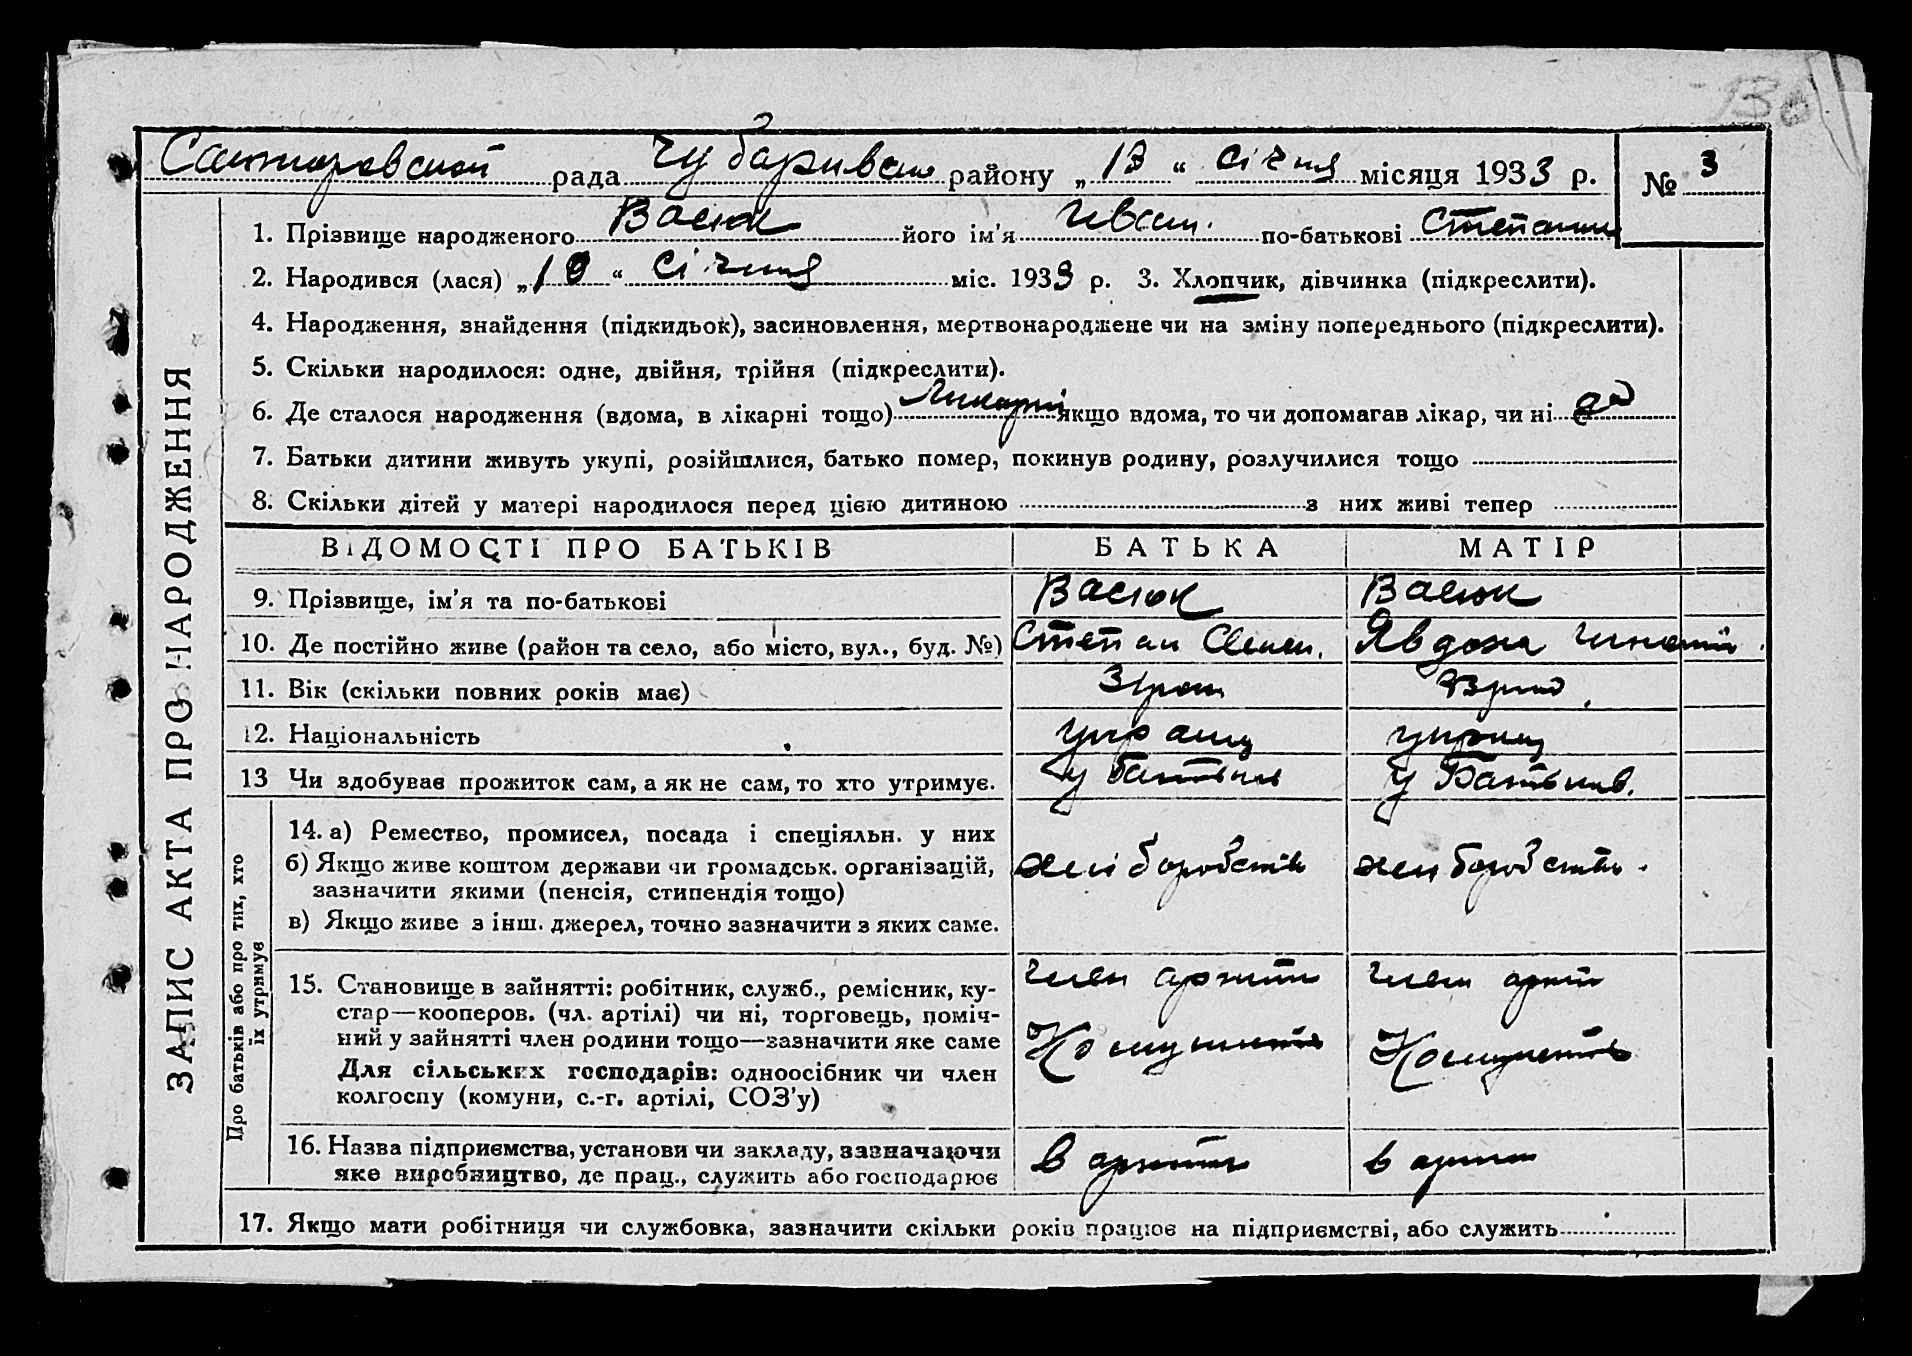 рада Чубарівськ району „ 13 “ січня місяця 1933 р. № 3
1. Прізвище народженого Васюк його ім'я Иван. по-батькові Степанов
2. Народився (лася) „ 10 “ січня міс. 1933 р. 3. Хлопчик, дівчинка (підкреслити).
4. Народження, знайдення (підкидьок), засиновлення, мертвонароджене чи на зміну попереднього (підкреслити).
5. Скільки народилося: одне, двійня, трійня (підкреслити).
6. Де сталося народження (вдома, в лікарні тощо) Ликарні якщо вдома, то чи допомагав лікар, чи ні да
7. Батьки дитини живуть укупі, розійшлися, батько помер, покинув родину, розлучилися тощо
8. Скільки дітей у матері народилося перед цією дитиною з них живі тепер
ЗАПИС АКТА ПРО НАРОДЖЕННЯ
ВІДОМОСТІ ПРО БАТЬКІВ БАТЬКА МАТІР
9. Прізвище, ім'я та по-батькові Васюк Васюк
10. Де постійно живе (район та село, або місто, вул., буд. №) Степан Явдоха
11. Вік (скільки повних років має)
12. Національність украінц украінц
13 Чи здобуває прожиток сам, а як не сам, то хто утримує. у Батьків у Батьків.
Про батьків або про тих, хто їх утримує
14. а) Ремество, промисел, посада і спеціяльн. у них
б) Якщо живе коштом держави чи громадськ. організацій, хліборобств хлиборобств.
зазначити якими (пенсія, стипендія тощо)
в) Якщо живе з інш. джерел, точно зазначити з яких саме.
15. Становище в зайнятті: робітник, служб., ремісник, ку- член артіли член артіл
стар—кооперов. (чл. артілі) чи ні, торговець, поміч-
ний у зайнятті член родини тощо—зазначити яке саме
Для сільських господарів: одноосібник чи член
колгоспу (комуни, с.-г. артілі, СОЗ'у)
16. Назва підприємства, установи чи закладу, зазначаючи в артіли в артіли
яке виробництво, де прац., служить або господарює
17. Якщо мати робітниця чи службовка, зазначити скільки років працює на підприємстві, або служить